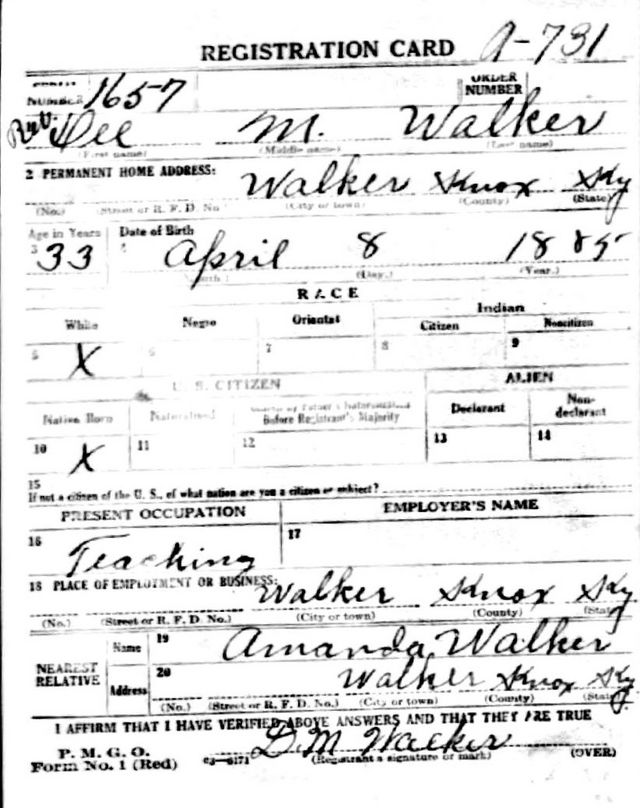 REGISTRATION CARD A-731
NUMBER 1657 ORDER NUMBER
Dee M. Walker
(First name) (Middle name) (Last name)
2 PERMANENT HOME ADDRESS: Walker Knox Ky
(No.) (Street or R. F. D. No.) (City or town) (County) (State)
Age in Years Date of Birth
3 33 4 April 8 1885
(Month) (Day.) (Year.)
RACE
White Negro Oriental Indian
Citizen Noncitizen
5 X 6 7 8 9
U. S. CITIZEN ALIEN
Native Born Naturalized Citizen by Father's Naturalization Before Registrant's Majority Declarant Non-declarant
10 X 11 12 13 14
15
If not a citizen of the U. S., of what nation are you a citizen or subject?
PRESENT OCCUPATION EMPLOYER'S NAME
16 Teaching 17
18 PLACE OF EMPLOYMENT OR BUSINESS: Walker Knox Ky
(No.) (Street or R. F. D. No.) (City or town) (County) (State)
NEAREST RELATIVE
Name 19 Amanda Walker
Address 20 Walker Knox Ky
(No.) (Street or R. F. D. No.) (City or town) (County) (State)
I AFFIRM THAT I HAVE VERIFIED ABOVE ANSWERS AND THAT THEY ARE TRUE
D. M. Walker
P. M. G. O.
Form No. 1 (Red) 03-6171 (Registrant's signature or mark) (OVER)